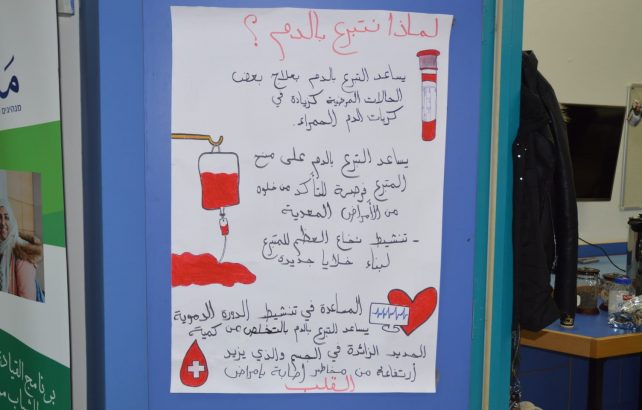 لماذا نتبرع بالدم ؟
يساعد التبرع بالدم بعلاج بعض
الحالات المرضية كزيادة في
كريات الدم الحمراء.
يساعد التبرع بالدم على منح
المتبرع فرصة للتأكد من خلوه
من الأمراض المعدية
- تنشيط نخاع العظم للمتبرع
لبناء خلايا جديدة
المساعدة في تنشيط الدورة الدموية
يساعد التبرع بالدم بالتخلص من كمية
الحديد الزائدة في الجسم والذي يزيد
ارتفاعه من مخاطر إصابة بإمراض
القلب
برنامج القيادة